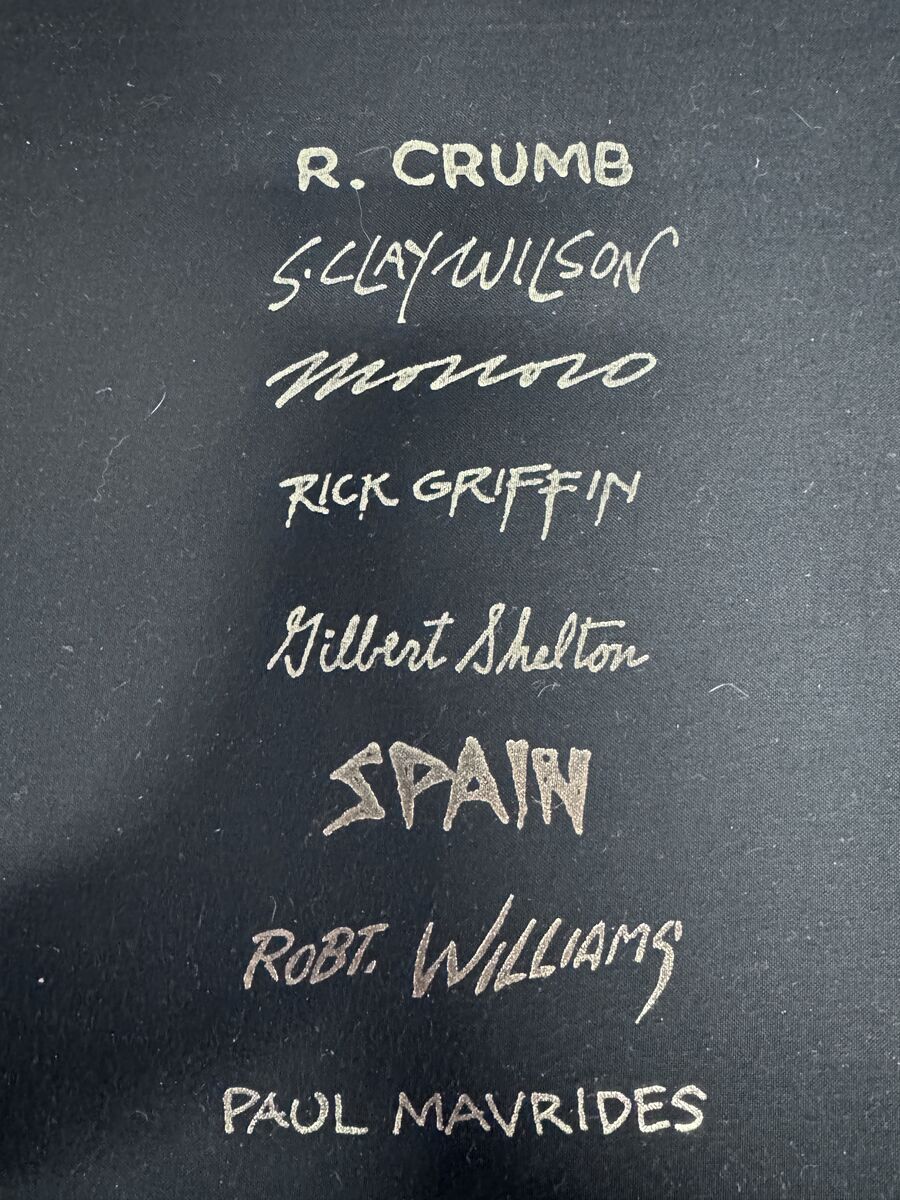 R. CRUMB
S. CLAY WILSON
Moscoso
RICK GRIFFIN
Gilbert Shelton
SPAIN
ROBT. WILLIAMS
PAUL MAVRIDES